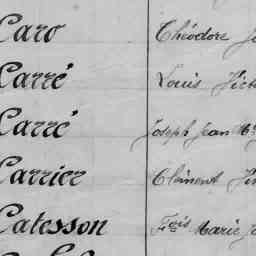 Caro Théodore
Carré Louis
Carré Joseph Jean
Carrier Clément
Catesson Fçois Marie